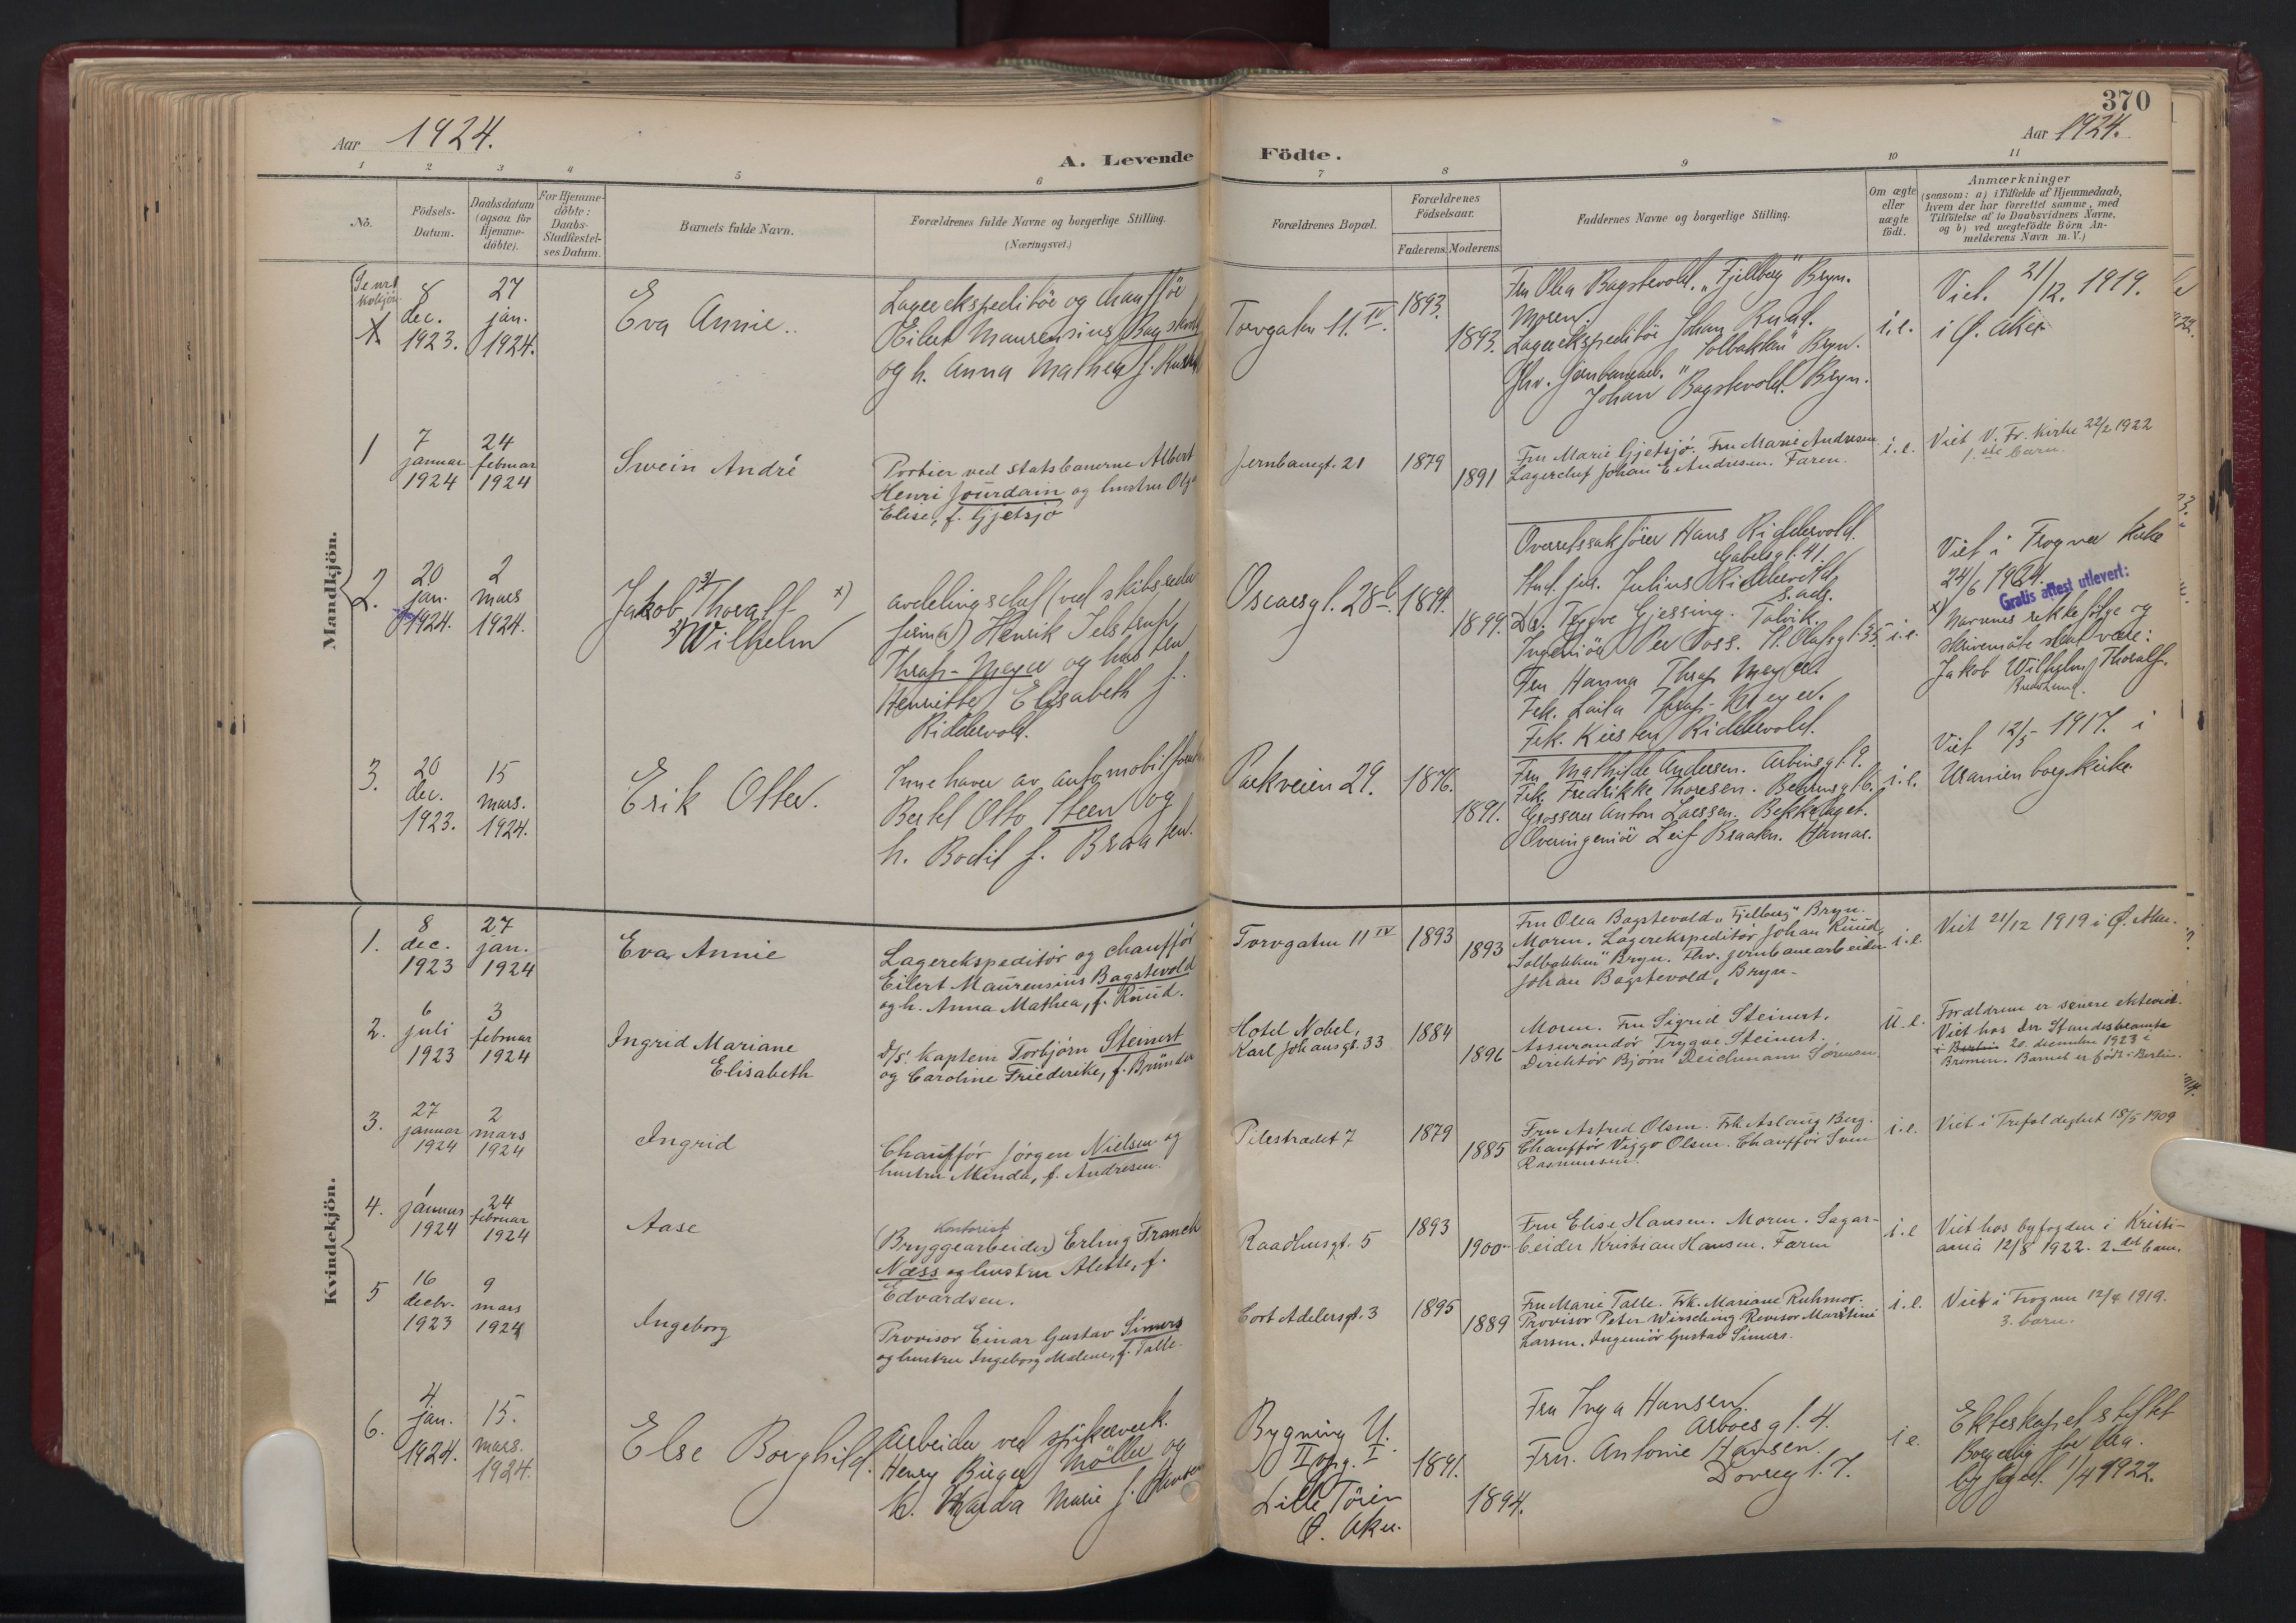 370
Aar 1924.
A. Levende Födte.
Aar 1924.
1 2 3 4 5 6 7 8 9 10 11
No.
Födsels-Datum.
Daabsdatum (ogsaa for Hjemme-döbte).
For Hjemme-döbte: Daabs-Stadfæstel-ses Datum.
Barnets fulde Navn.
Forældrenes fulde Navne og borgerlige Stilling.
(Næringsvei.)
Forældrenes Bopæl.
Forældrenes Födselsaar.
Faderens. Moderens.
Faddernes Navne og borgerlige Stilling.
Om ægte eller uægte födt.
Anmærkninger
(saasom: a) i Tilfælde af Hjemmedaab,
hvem der har forrettet samme, med
Tilföielse af to Daabsvidners Navne,
og b) ved uægtefödte Börn An-
melderens Navn m. V.)
Mandkjön.
Se nr 1
kvkjön
1
8
dec.
1923.
27
jan.
1924.
Eva Annie.
Lagerekspeditör og chaufför
Eilert Maurensius Bagstevold
og h. Anna Mathea f. Ruud
Torvgaten 11. IV.
1893.
1893.
Fru Olea Bagstevold. "Fjellberg" Bryn.
Moren.
Lagerekspeditör Johan Ruud.
"Solbakken" Bryn.
Fhv. jernbanearb.
Johan Bagstevold. Bryn.
i.e.
Viet. 21/12. 1919.
i Ø. Aker
1
7
januar
1924
24
februar
1924
Swein André
Portier ved statsbanerne Albert
Henri Jourdain og hustru Olga
Elise, f. Gjetsjö
Jernbanegt. 21
1879
1891
Fru Marie Gjetsjö. Fru Marie Andresen
Lagerchef Johan E. Andresen. Faren.
i.e.
Viet V. Fr. Kirke 22/2 1922
1.ste barn.
2.
20
jan.
1924.
2
mars
1924.
Jakob 3) Thoralf x)
2) Wilhelm
avdelingschef (ved skibsreder
firma) Henrik Jelstrup
Thrap-Meyer og hustru
Henriette Elisabeth f.
Riddervold.
Oscarsgt. 28 b.
1894.
1899.
Overretssakförer Hans Riddervold.
Gabelsgt. 41.
Stud. jur. Julius Riddervold
s. ads.
Dr. Trygve Gjessing. Talvik.
Ingeniör Per Voss. St. Olafsgt. 35.
Fru Hanna Thrap Meyer.
Frk. Laila Thrap-Meyer.
Frk. Kirsten Riddervold.
i.e.
Viet i Frogner Kirke
24/6 1921.
Gratis attest utlevert:
x) Navnes rekkefölge og
skrivemåte skal være:
Jakob Wilhelm Thoralf.
3.
20
dec.
1923.
15
mars.
1924.
Erik Otter.
Innehaver av automobilforretn
Bertel Otto Steen og
h. Bodil f. Braaten.
Parkveien 29.
1876.
1891.
Fru Mathilde Andersen. Arbinsgt. 9.
Frk. Fredrikke Thoresen. Behrensgt 6.
Grosserer Anton Larssen. Bekkelaget.
Overingeniör Leif Braaten. Hamar.
i.e.
Viet 12/5 1917. i
Uranienborg Kirke
Kvindekjön.
1.
8
dec.
1923
27
jan.
1924
Eva Annie
Lagerekspeditör og chaufför
Eilert Maurensius Bagstevold
og h. Anna Mathea, f. Ruud.
Torvgaten 11 IV
1893
1893
Fru Olea Bagstevold, "Fjellberg" Bryn.
Moren. Lagerekspeditör Johan Ruud,
"Solbakken" Bryn. Fhv. jernbanearbeider
Johan Bagstevold, Bryn.
i.e.
Viet 21/12 1919 i Ø. Aker.
2.
6
juli
1923
3
februar
1924
Ingrid Mariane
Elisabeth
d/s. kaptein Torbjörn Steinert
og Caroline Friederike, f. Bründer
Hotel Nobel,
Karl Johansgt. 33
1884
1896
Moren. Fru Sigrid Steinert.
Assurandör Trygve Steinert.
Direktör Björn Deichmann Sörensen
u.e.
Foreldrene er senere ektevict.
Viet hos Der Standesbeamte
i Berlin 20. december 1923 i
Bremen. Barnet er födt i Berlin.
3.
27
januar
1924
2
mars
1924
Ingrid
Chaufför Jörgen Nielsen og
hustru Minda, f. Andresen.
Pilestrædet 7
1879
1885
Fru Astrid Olsen. Frk Aslaug Berg.
Chaufför Viggo Olsen. Chaufför Sven
Rasmussen.
i.e.
Viet i Trefoldighet 18/5 1909
4.
1
januar
1924
24
februar
1924
Aase
Kontorist
(Bryggearbeider) Erling Franck
Næss og hustru Alette, f.
Edvardsen.
Raadhusgt. 5
1893
1900
Fru Elise Hansen. Moren. Sagar-
beider Kristian Hansen. Faren
i.e
Viet hos byfogden i Kristi-
ania 12/8 1922. 2. det barn.
5
16
decbr.
1923
9
mars
1924
Ingeborg
Provisor Einar Gustav Simers
og hustru Ingeborg Malene, f. Talle.
Cort Adelersgt. 3
1895
1889
Fru Marie Talle. Frk. Mariane Ruhmor.
Provisor Peter Wirsching Revisor Martini
Larsen. Ingeniör Gustav Simers.
i.e.
Viet i Frogner 12/4 1919.
3. barn.
6.
4.
jan.
1924.
15.
mars.
1924.
Else Borghild.
Arbeider ved spikerverk.
Henry Birger Möller og
h. Marda Marie f. Hansen
Bygning U.
II opg. I
Lille Töien
Ø. Aker.
1891.
1894.
Fru Inga Hansen.
Arboesgt. 4.
Fru. Antonie Hansen.
Dovregt. 7.
i e.
Ekteskapet stiftet
Borgerlig for Kra.
byfoged. 1/4 1922.